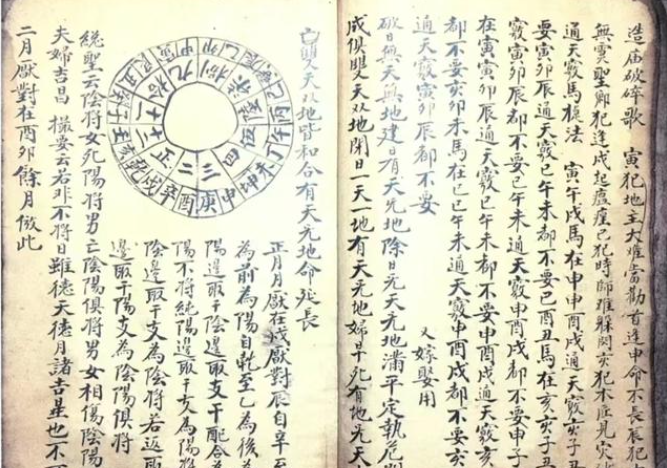 造庙破碎歌 寅犯地主大难當勸首逢申命不長辰犯
無 聖卿犯逢戌起瘟 巳犯時師难躲閃亥犯木匠見災
通天竅馬旋法 寅午戌馬在申申酉戌通天竅亥子
要寅卯辰通天竅巳午未都不要巳酉丑馬在亥亥子
竅寅卯辰都不要巳午未通天竅申酉戌都不要申子
在寅寅卯辰通天竅巳午未都不要申酉戌通天竅亥
都不要亥卯未馬在巳巳午未通天竅申酉戌都不要亥
通天竅寅卯辰都不要 又嫁娶用
破日無天無地建日有天无地除日无天无地滿平定執危
成俱雙天双地閉日一天一地有天无地婦早死有地无天
亡雙天双地皆和合有天无地命延長
正 二 三 四 九 十 十一 十二
未 坤 申 庚 酉 辛 戌 乾 亥 壬 子 癸 丑
正月月厭在戌厭對辰自辛至
為前為陽自乾至乙為後為
陽邊取干陰邊取支干配合為
陽不將純陽邊取干支為陽將
陰邊取干支為陰將若返取
邊取干陽支為陰陽俱將
統聖云陰將女死陽將男亡陰陽俱將男女相傷陰陽
夫婦吉昌 撮要云若非不將日雖德天德月諸吉星也不
二月厭對在酉卯餘月倣此